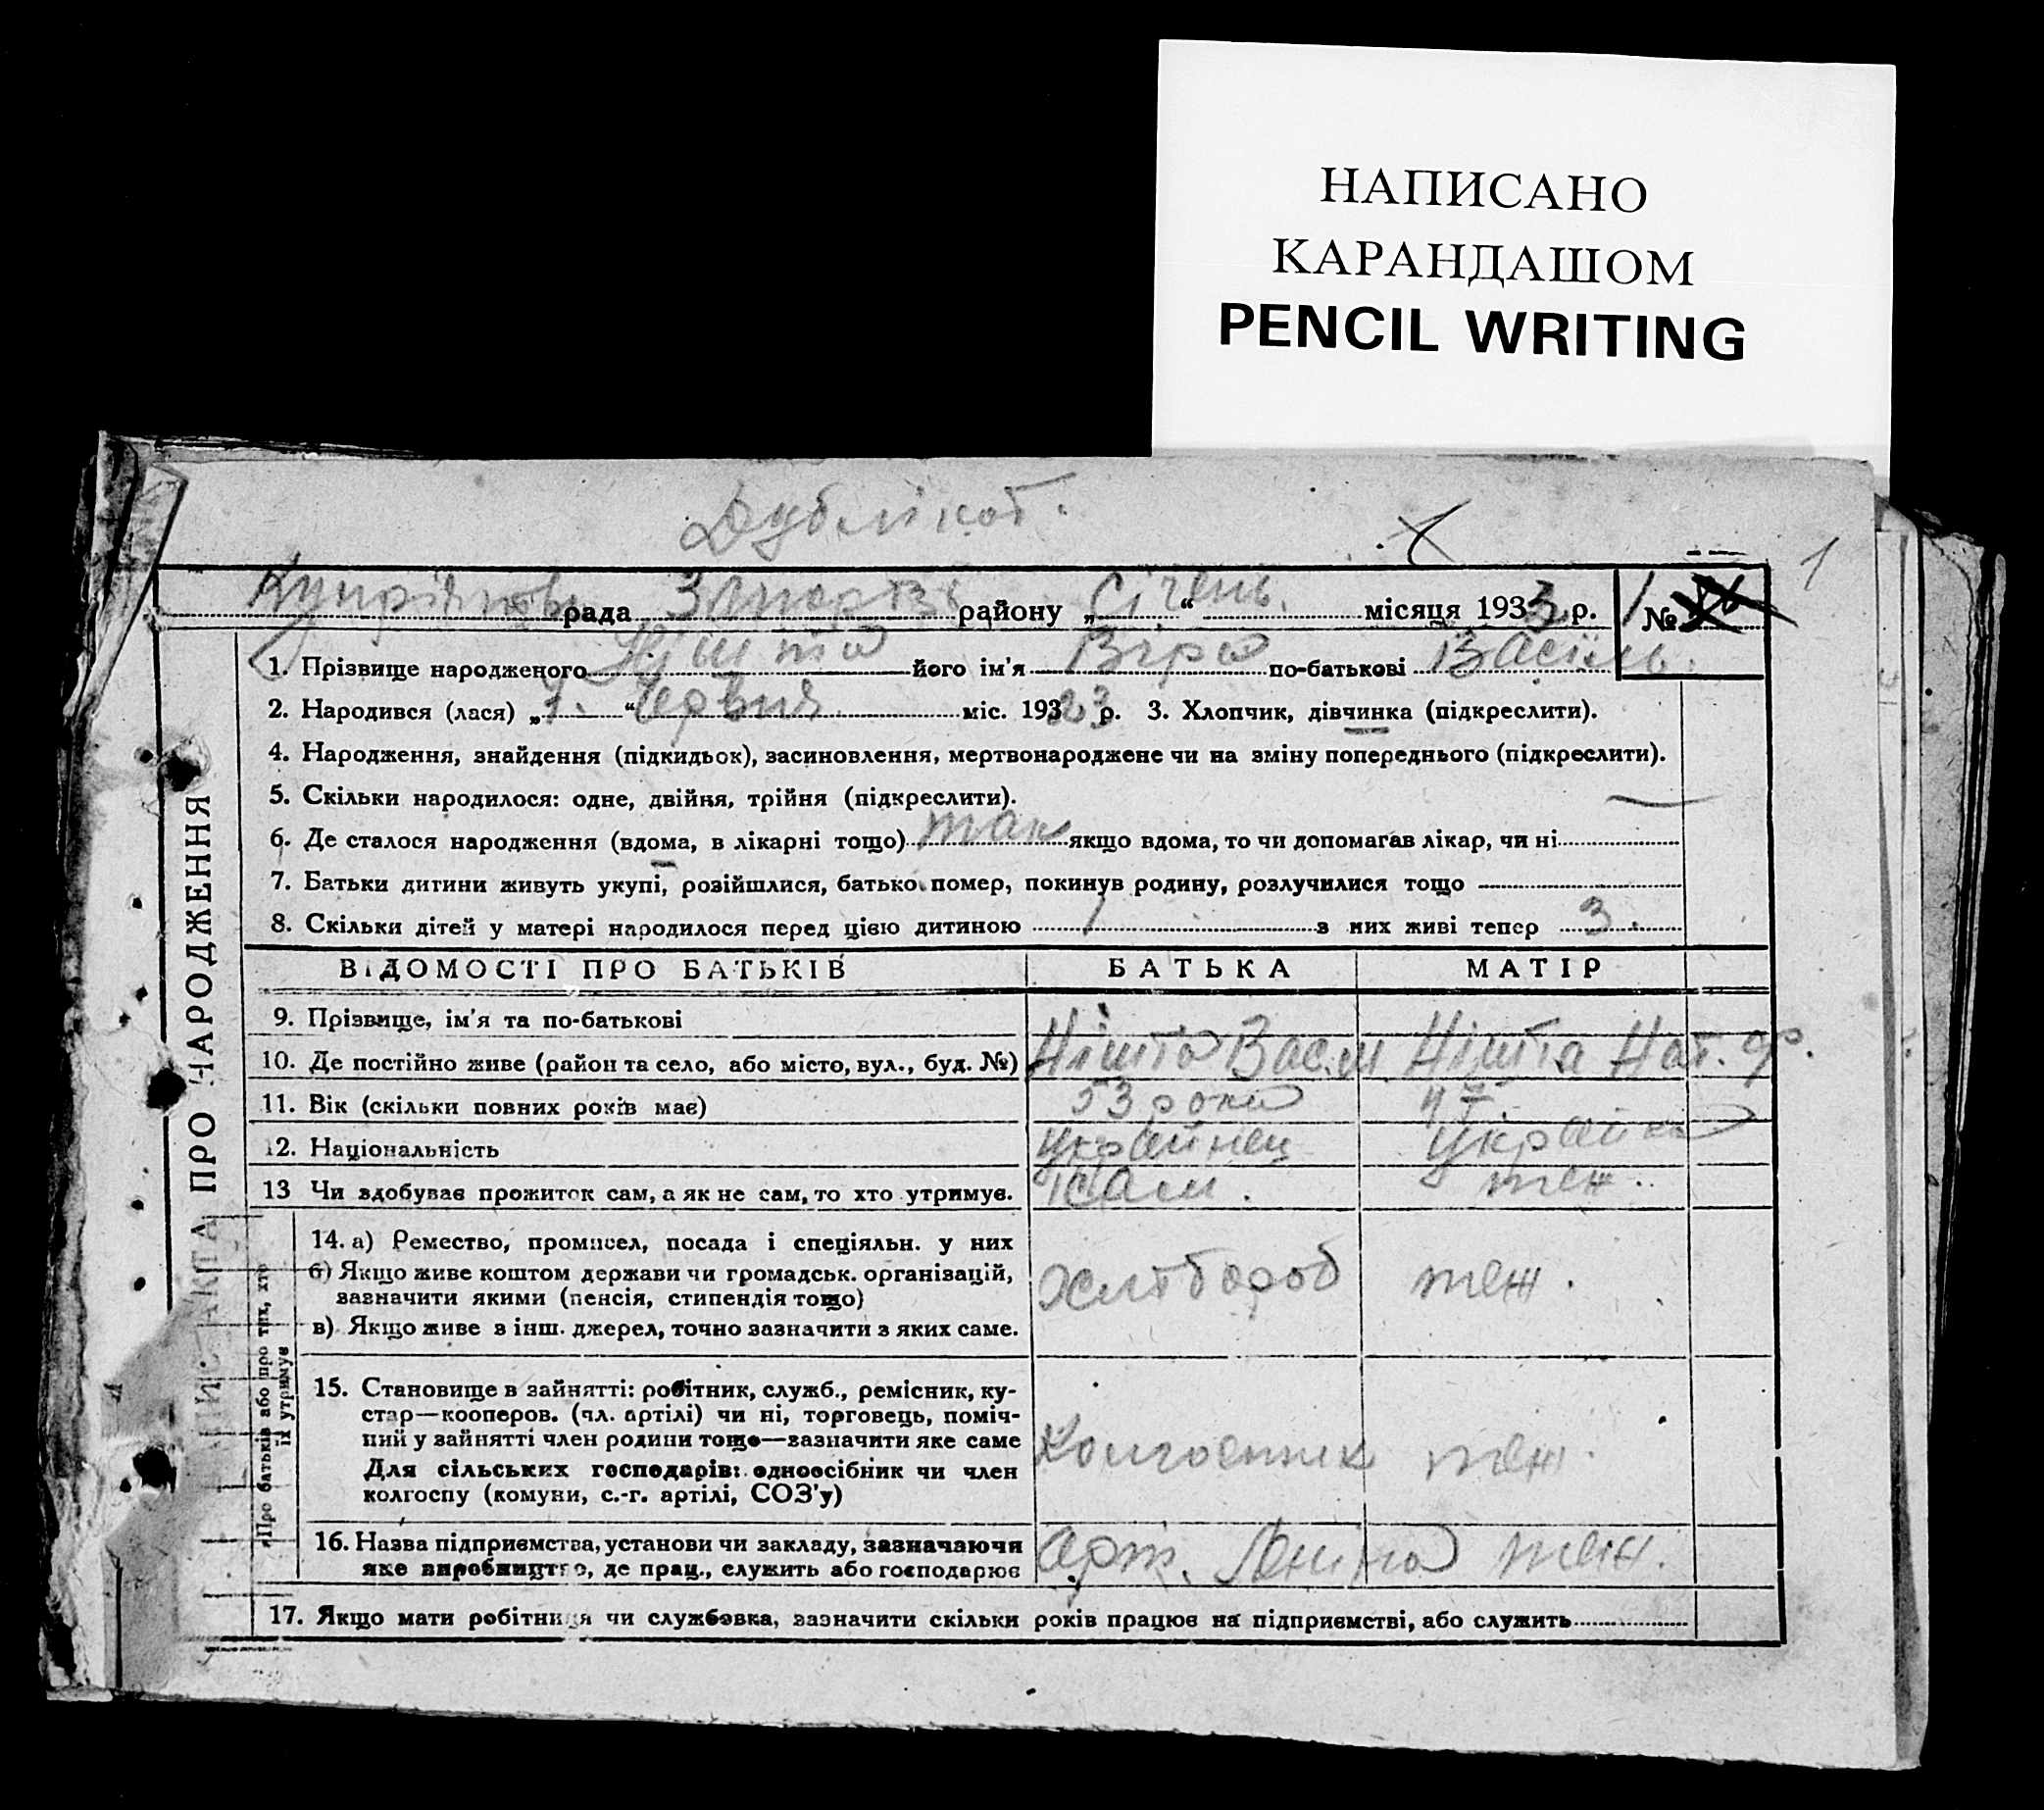 НАПИСАНО
КАРАНДАШОМ
PENCIL WRITING
Дублікат.
1
рада районуˮ Січень. місяця 1933 р. 1 №
1. Прізвище народженого Нішта його ім'я Віра по-батькові Василь.
2. Народився (лася) „1.“ Червня міс. 1923 р. 3. Хлопчик, дівчинка (підкреслити).
4. Народження, знайдення (підкидьок), засиновлення, мертвонароджене чи на зміну попереднього (підкреслити).
5. Скільки народилося: одне, двійня, трійня (підкреслити).
6. Де сталося народження (вдома, в лікарні тощо) так якщо вдома, то чи допомагав лікар, чи ні
7. Батьки дитини живуть укупі, розійшлися, батько помер, покинув родину, розлучилися тощо
8. Скільки дітей у матері народилося перед цією дитиною 1 з них живі тепер 3.
ПРО НАРОДЖЕННЯ
ВІДОМОСТІ ПРО БАТЬКІВ БАТЬКА МАТІР
9. Прізвище, ім'я та по-батькові
10. Де постійно живе (район та село, або місто, вул., буд. №) Нішта Васил Нішта Нат. Ф.
11. Вік (скільки повних років має) 53 роки 47.
12. Національність Українец Українка
13 Чи здобуває прожиток сам, а як не сам, то хто утримує. сам. теж.
Про батьків або про тих, хто
їх утримує
14. а) Ремество, промисел, посада і спеціяльн. у них
б) Якщо живе коштом держави чи громадськ. організацій,
зазначити якими (пенсія, стипендія тощо) хлібороб теж.
в) Якщо живе з інш. джерел, точно зазначити з яких саме.
15. Становище в зайнятті: робітник, служб., ремісник, ку-
стар—кооперов. (чл. артілі) чи ні, торговець, поміч-
ний у зайнятті член родини тощо—зазначити яке саме Колгоспник теж.
Для сільських господарів: одноосібник чи член
колгоспу (комуни, с.-г. артілі, СОЗ'у)
16. Назва підприємства, установи чи закладу, зазначаючи
яке виробництво, де прац., служить або господарює Арт. Леніна теж.
17. Якщо мати робітниця чи службовка, зазначити скільки років працює на підприємстві, або служить